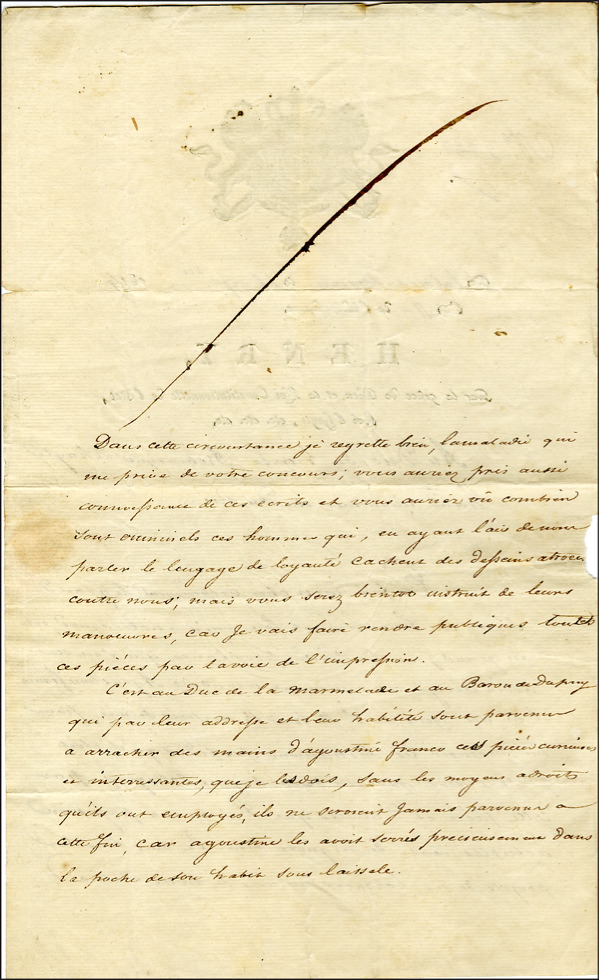 HENRY,
Dans cette circonstance je regrette bien, la maladie qui
me prive de votre concours; vous auriez pris aussi
connoissance de ces ecrits et vous auriez vû combien
sont criminels ces hommes qui, en ayant l'air de nous
parler le lengage de loyauté cachent des desseins atroces
contre nous; mais vous serez bientot instruit de leurs
manoeuvres, car Je vais faire rendre publiques toutes
ces piéces par la voie de l'impressions.
C'est au Duc de la Marmelade et au Baron de Dupuy
qui par leur addresse et leur habilité sont parvenu
a arracher des mains d'agoustine franco ces piéces curieuses
et interressantes, que je les dois, sans les moyens adroits
qu'ils ont employés, ils ne seroient Jamais parvenu a
cette fin, car agoustine les avoit serrés precieusement dans
la poche de son habit sous laissele.